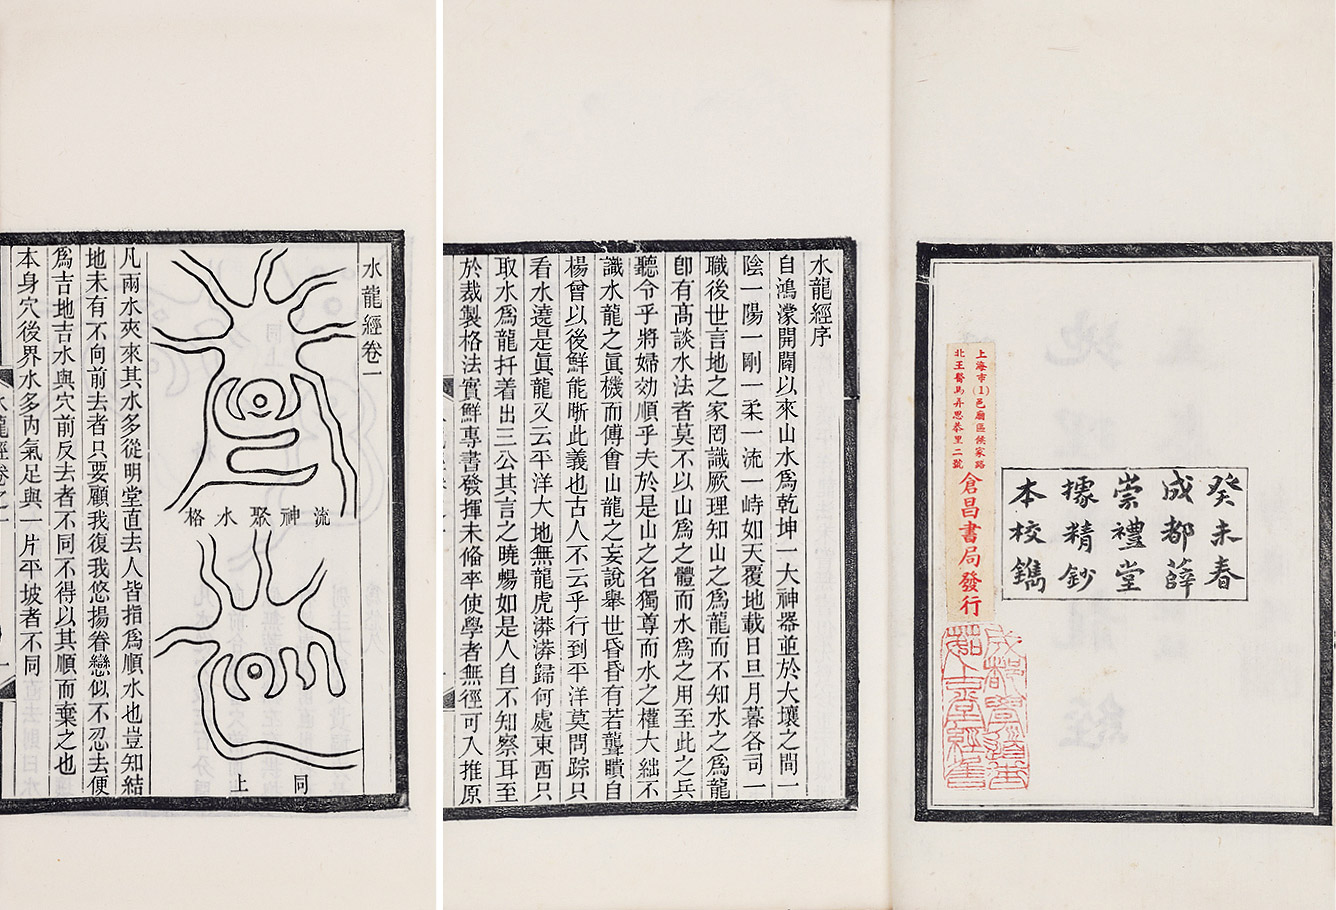 癸未春
成都薛
崇禮堂
據精鈔
本校鐫
上海市(1)邑廟區侯家路
北王醫馬弄思恭里二號
倉昌書局發行
水龍經序
自鴻濛開闢以來山水爲乾坤一大神器並於大壤之間一
陰一陽一剛一柔一流一峙如天覆地載日旦月暮各司一
職後世言地之家罔識厥理知山之爲龍而不知水之爲龍
卽有髙談水法者莫不以山爲之體而水爲之用至此之兵
聽令乎將婦効順乎夫於是山之名獨尊而水之權大絀不
識水龍之眞機而傅會山龍之妄說舉世昏昏有若聾瞶自
楊曾以後鮮能晣此義也古人不云乎行到平洋莫問踪只
看水遶是眞龍又云平洋大地無龍虎漭漭歸何處東西只
取水爲龍扦着出三公其言之曉暢如是人自不知察耳至
於裁製格法實鮮專書發揮未偹卒使學者無徑可入推原
水龍經卷一
流神聚水格
同上
凡兩水夾來其水多從明堂直去人皆指爲順水也豈知結
地未有不向前去者只要顧我復我悠揚眷戀似不忍去便
爲吉地吉水與穴前反去者不同不得以其順而棄之也
本身穴後界水多內氣足與一片平坡者不同